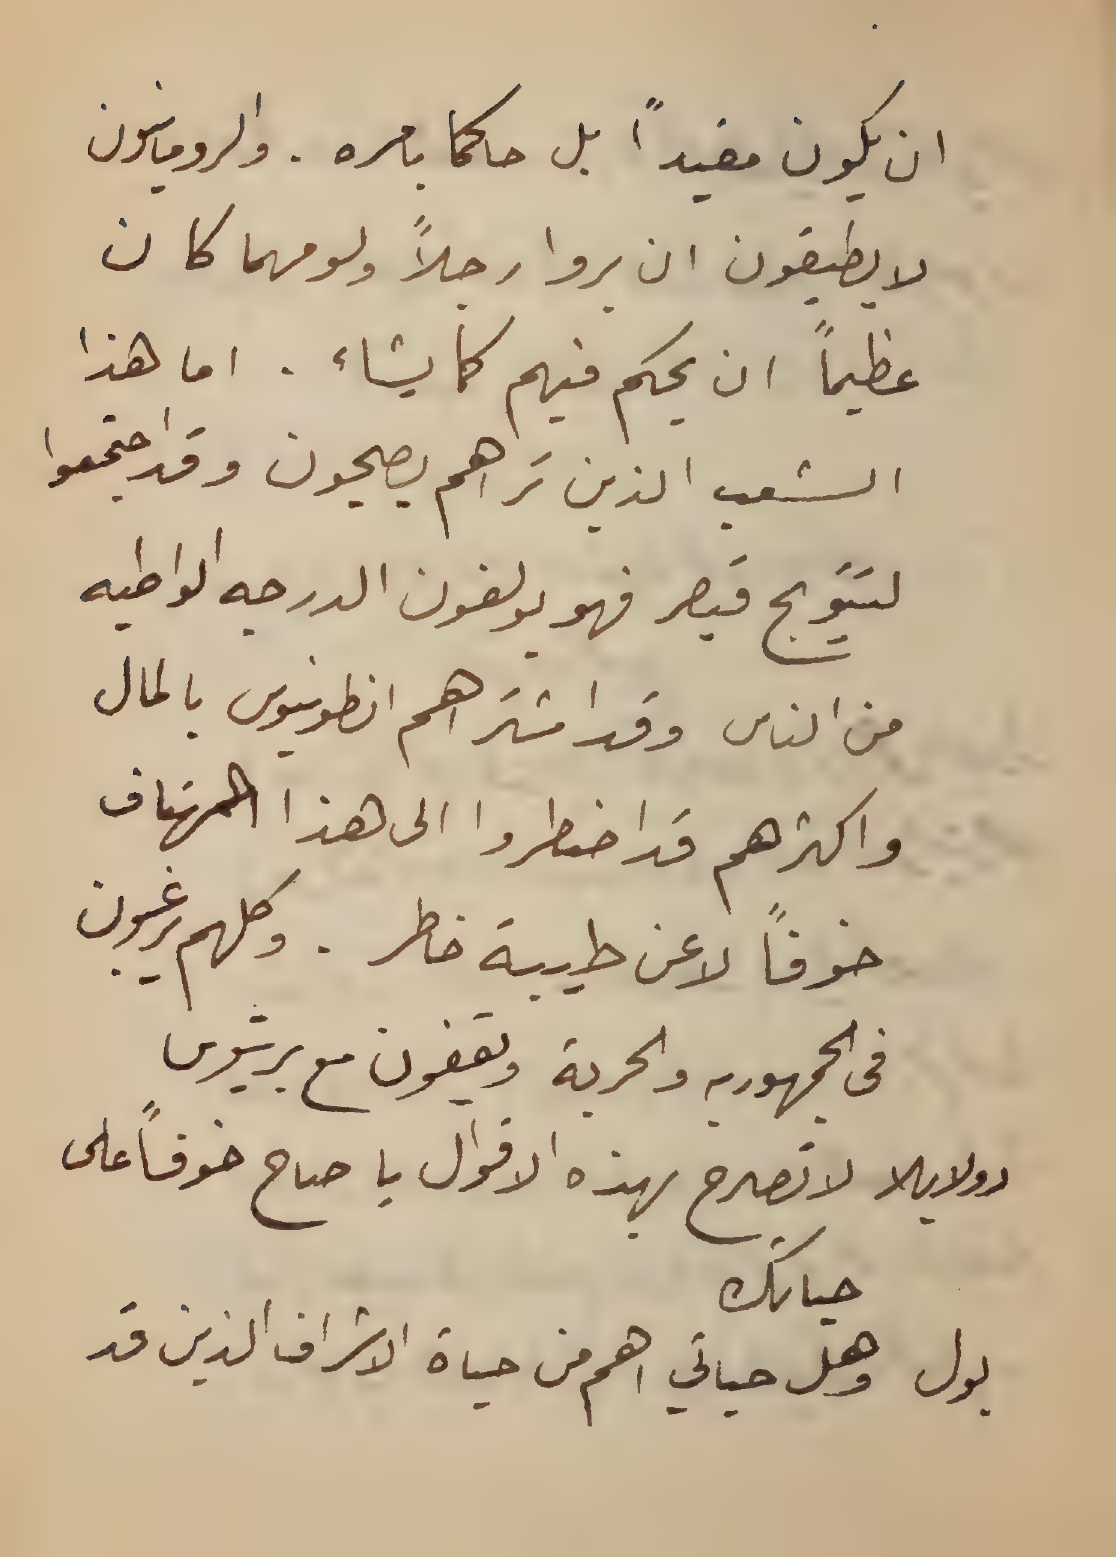 ان يكون مقيداً بل حاكما بامره . والرومانيون
لا يطيقون ان يروا رجلاً ولو مهما كان
عظيماً ان يحكم فيهم كما يشاء . اما هذا
الشعب الذين تراهم يصيحون وقد اجتمعوا
لتتويج قيصر فهو يولفون الدرجه الواطيه
من الناس وقد اشتراهم انطونيوس بالمال
واكثرهم قد اضطروا الى هذا الهتاف
خوفاً لا عن طيبة خاطر . وكلهم يرغبون
فى الجمهوريه والحرية ويقفون مع بروتوس
دولابلا لا تصرح بهذه الاقوال يا صاح خوفاً على
حياتك
بول وهل حياتي اهم من حياة الاشراف الذين قد